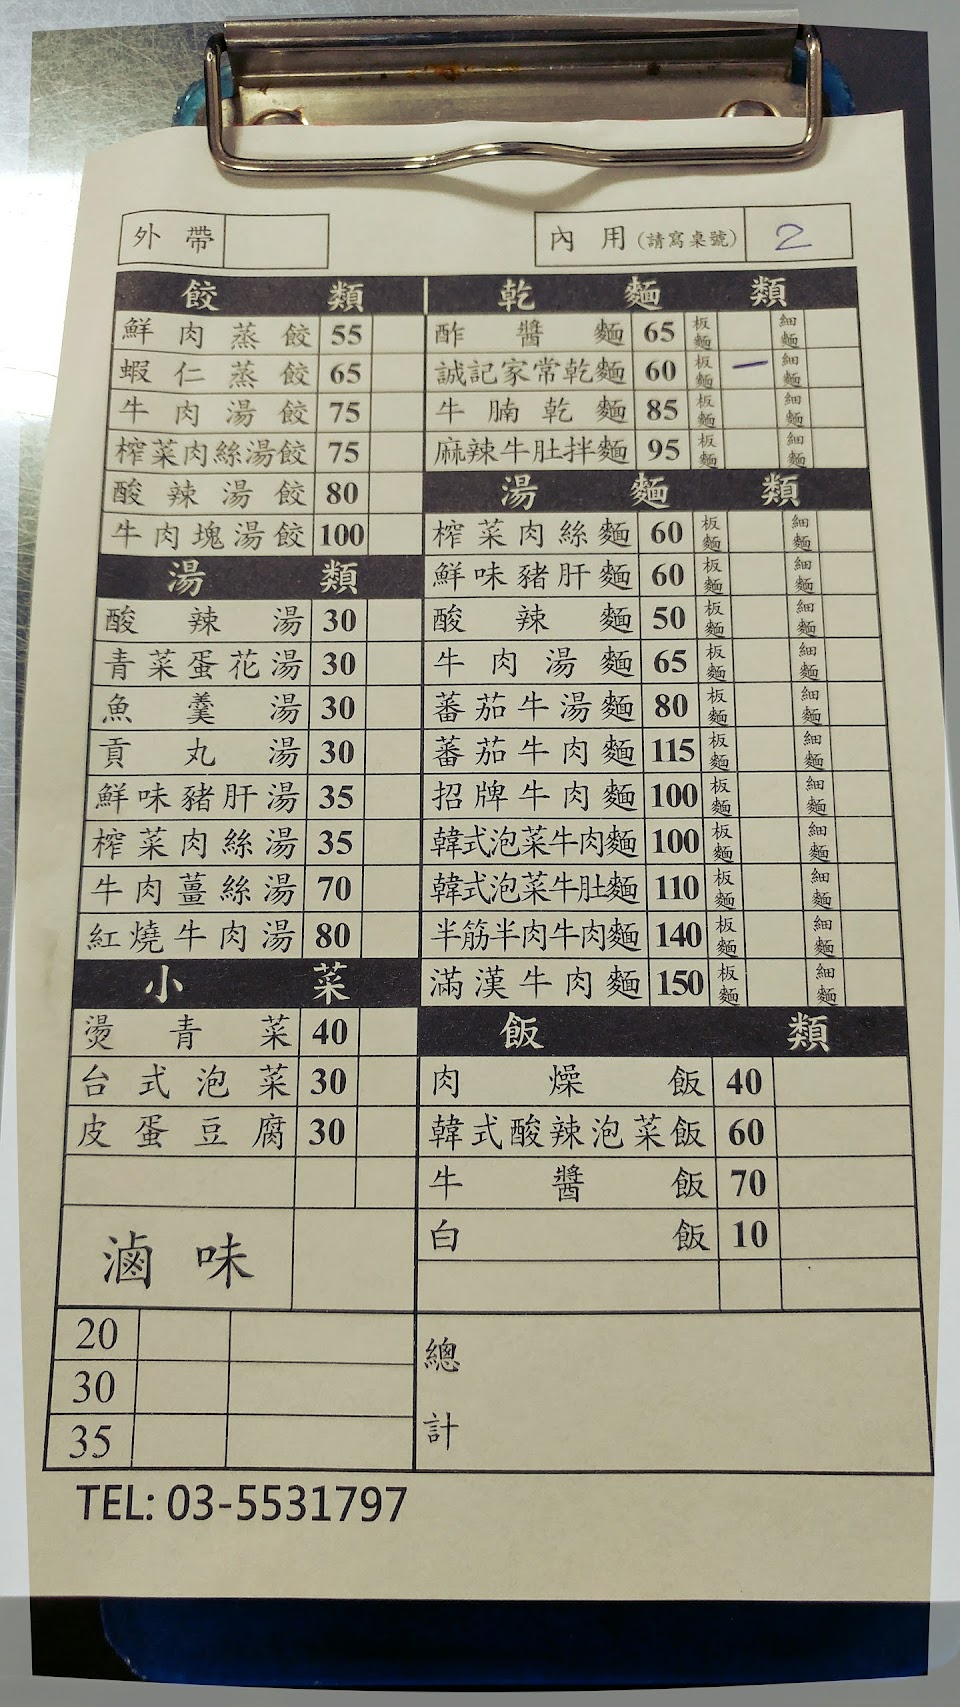 外帶
內用(請寫桌號) 2
餃類
鮮肉蒸餃 55
蝦仁蒸餃 65
牛肉湯餃 75
榨菜肉絲湯餃 75
酸辣湯餃 80
牛肉塊湯餃 100
湯類
酸辣湯 30
青菜蛋花湯 30
魚羹湯 30
貢丸湯 30
鮮味豬肝湯 35
榨菜肉絲湯 35
牛肉薑絲湯 70
紅燒牛肉湯 80
小菜
燙青菜 40
台式泡菜 30
皮蛋豆腐 30
滷味
20
30
35
乾麵類
酢醬麵 65 板麵 細麵
誠記家常乾麵 60 板麵 一 細麵
牛腩乾麵 85 板麵 細麵
麻辣牛肚拌麵 95 板麵 細麵
湯麵類
榨菜肉絲麵 60 板麵 細麵
鮮味豬肝麵 60 板麵 細麵
酸辣麵 50 板麵 細麵
牛肉湯麵 65 板麵 細麵
蕃茄牛湯麵 80 板麵 細麵
蕃茄牛肉麵 115 板麵 細麵
招牌牛肉麵 100 板麵 細麵
韓式泡菜牛肉麵 100 板麵 細麵
韓式泡菜牛肚麵 110 板麵 細麵
半筋半肉牛肉麵 140 板麵 細麵
滿漢牛肉麵 150 板麵 細麵
飯類
肉燥飯 40
韓式酸辣泡菜飯 60
牛醬飯 70
白飯 10
總計
TEL: 03-5531797